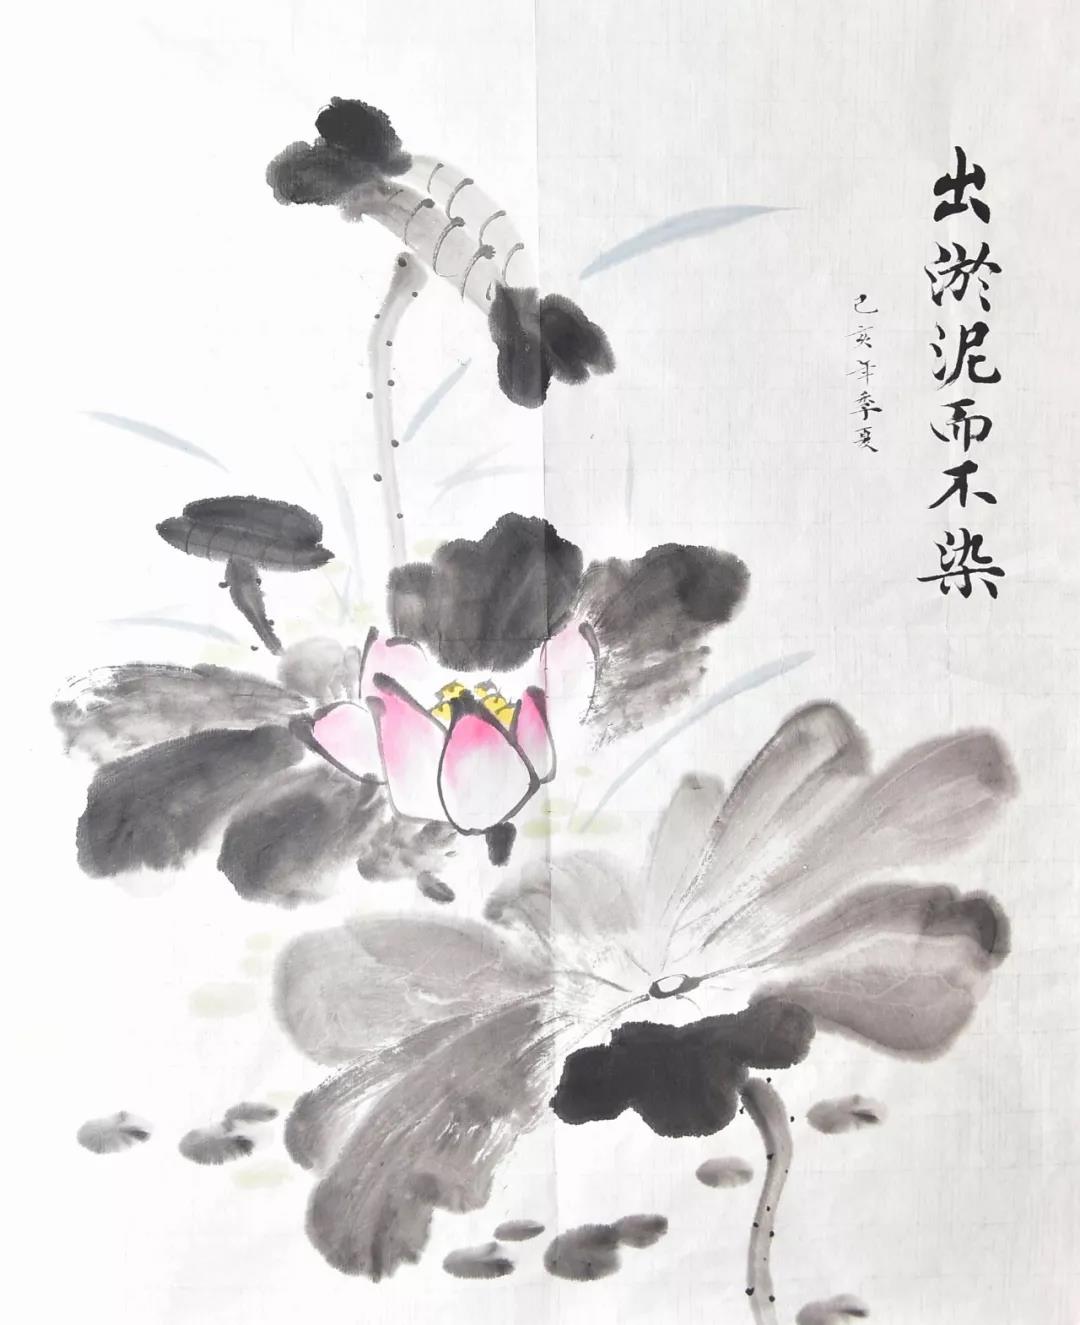 出淤泥而不染
己亥年季夏